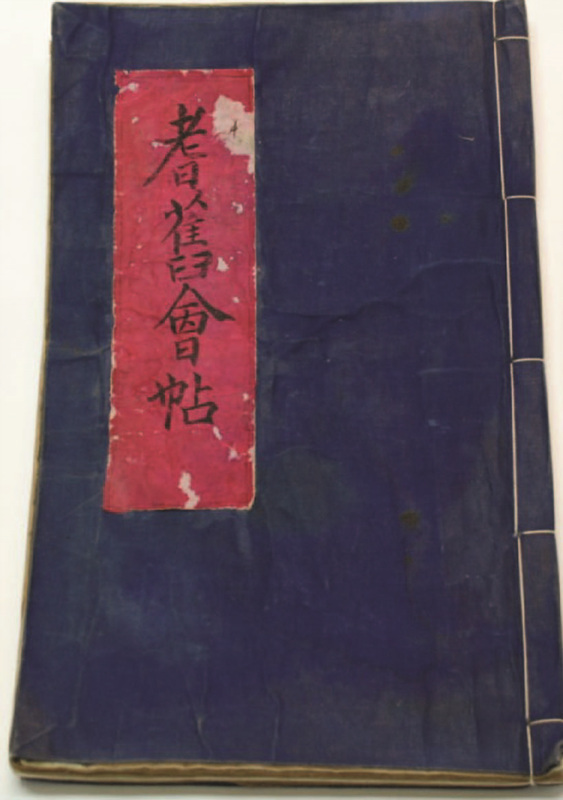 耆舊會帖